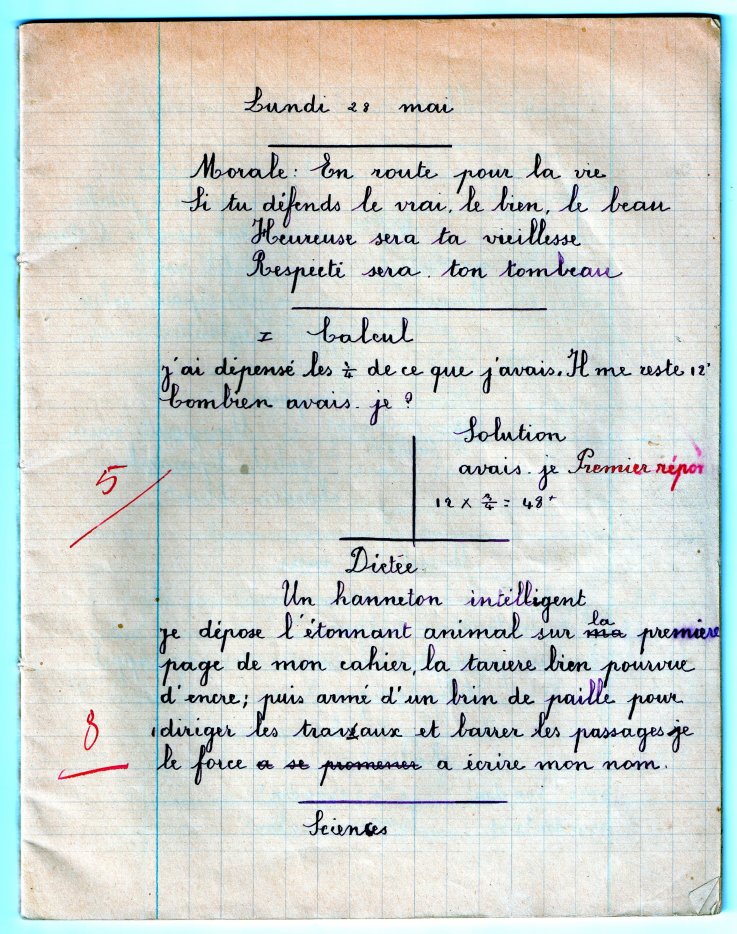 Lundi 28 mai
Morale: En route pour la vie
Si tu défends le vrai, le bien, le beau
Heureuse sera ta vieillesse
Respecté sera ton tombeau
I Calcul
j'ai dépensé les 3/4 de ce que j'avais. Il me reste 12f
Combien avais-je ?
Solution
avais-je Premier répon
12 x 3/4 = 48f
5
Dictée
Un hanneton intelligent
la
je dépose l'étonnant animal sur ma première
page de mon cahier, la tarière bien pourvue
d'encre; puis armé d'un brin de paille pour
diriger les travaux et barrer les passages je
8
le force a se promener a écrire mon nom.
Sciences